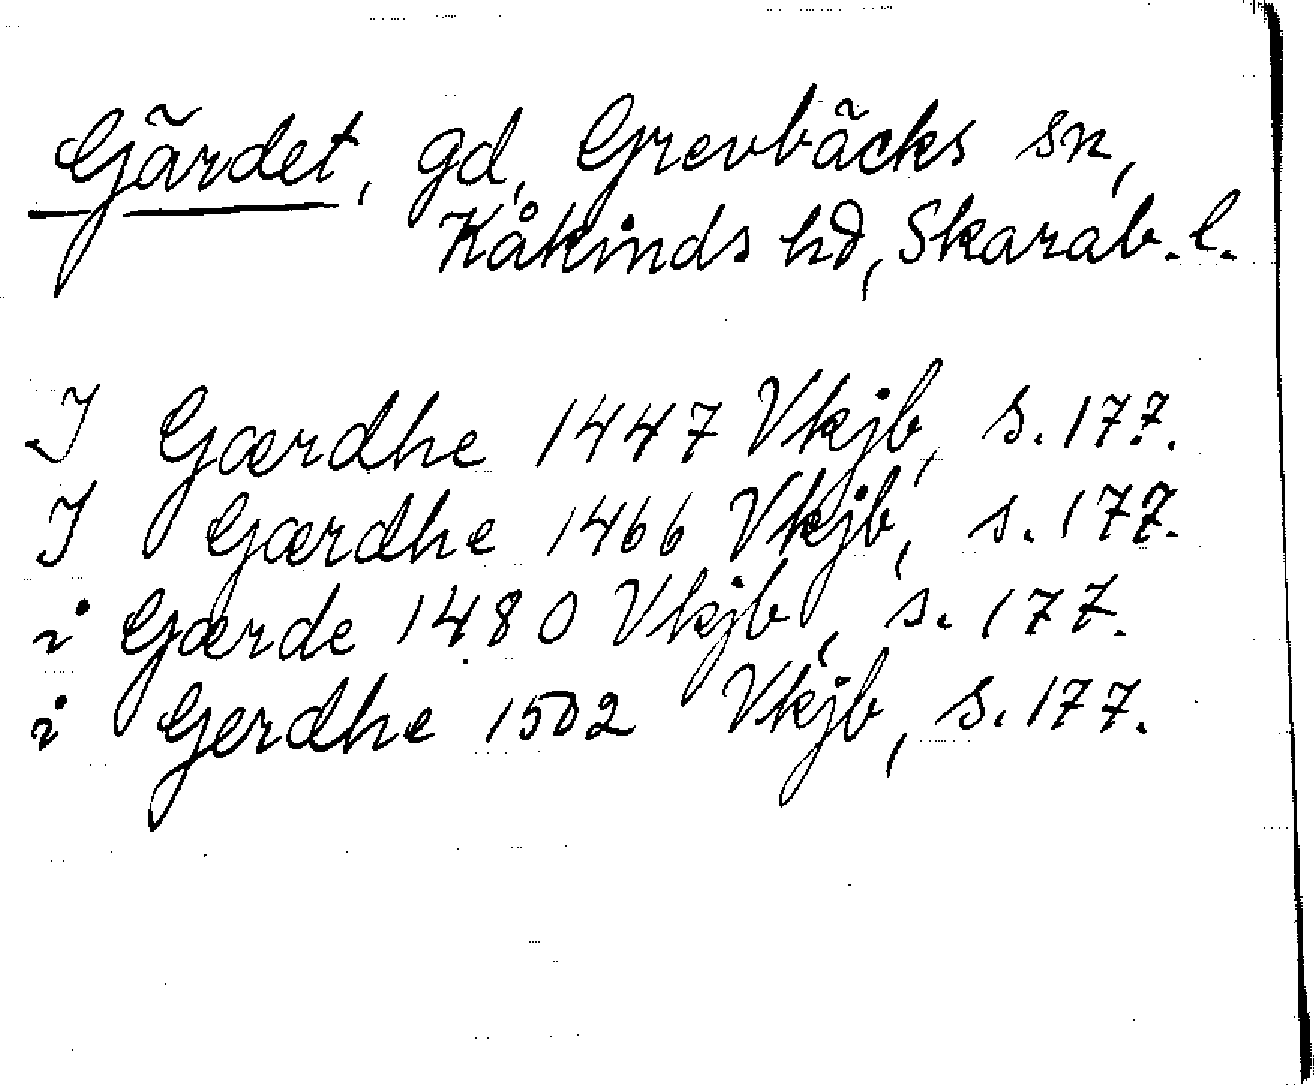 Gärdet, gd, Grevbäcks sn,
Kåkinds hd, Skarab. l.
I Gærdhe 1447 Vkjb, s. 177.
I Gærdhe 1466 Vkjb, s. 177.
i Gærde 1480 Vkjb, s. 177.
i Gerdhe 1502 Vkjb, s. 177.